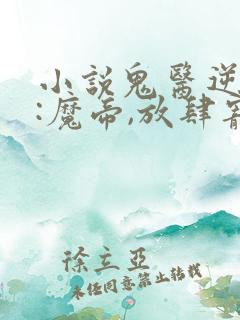 小說鬼醫逆
:魔帝,放肆寵
徐立亞
未经同意禁止转载